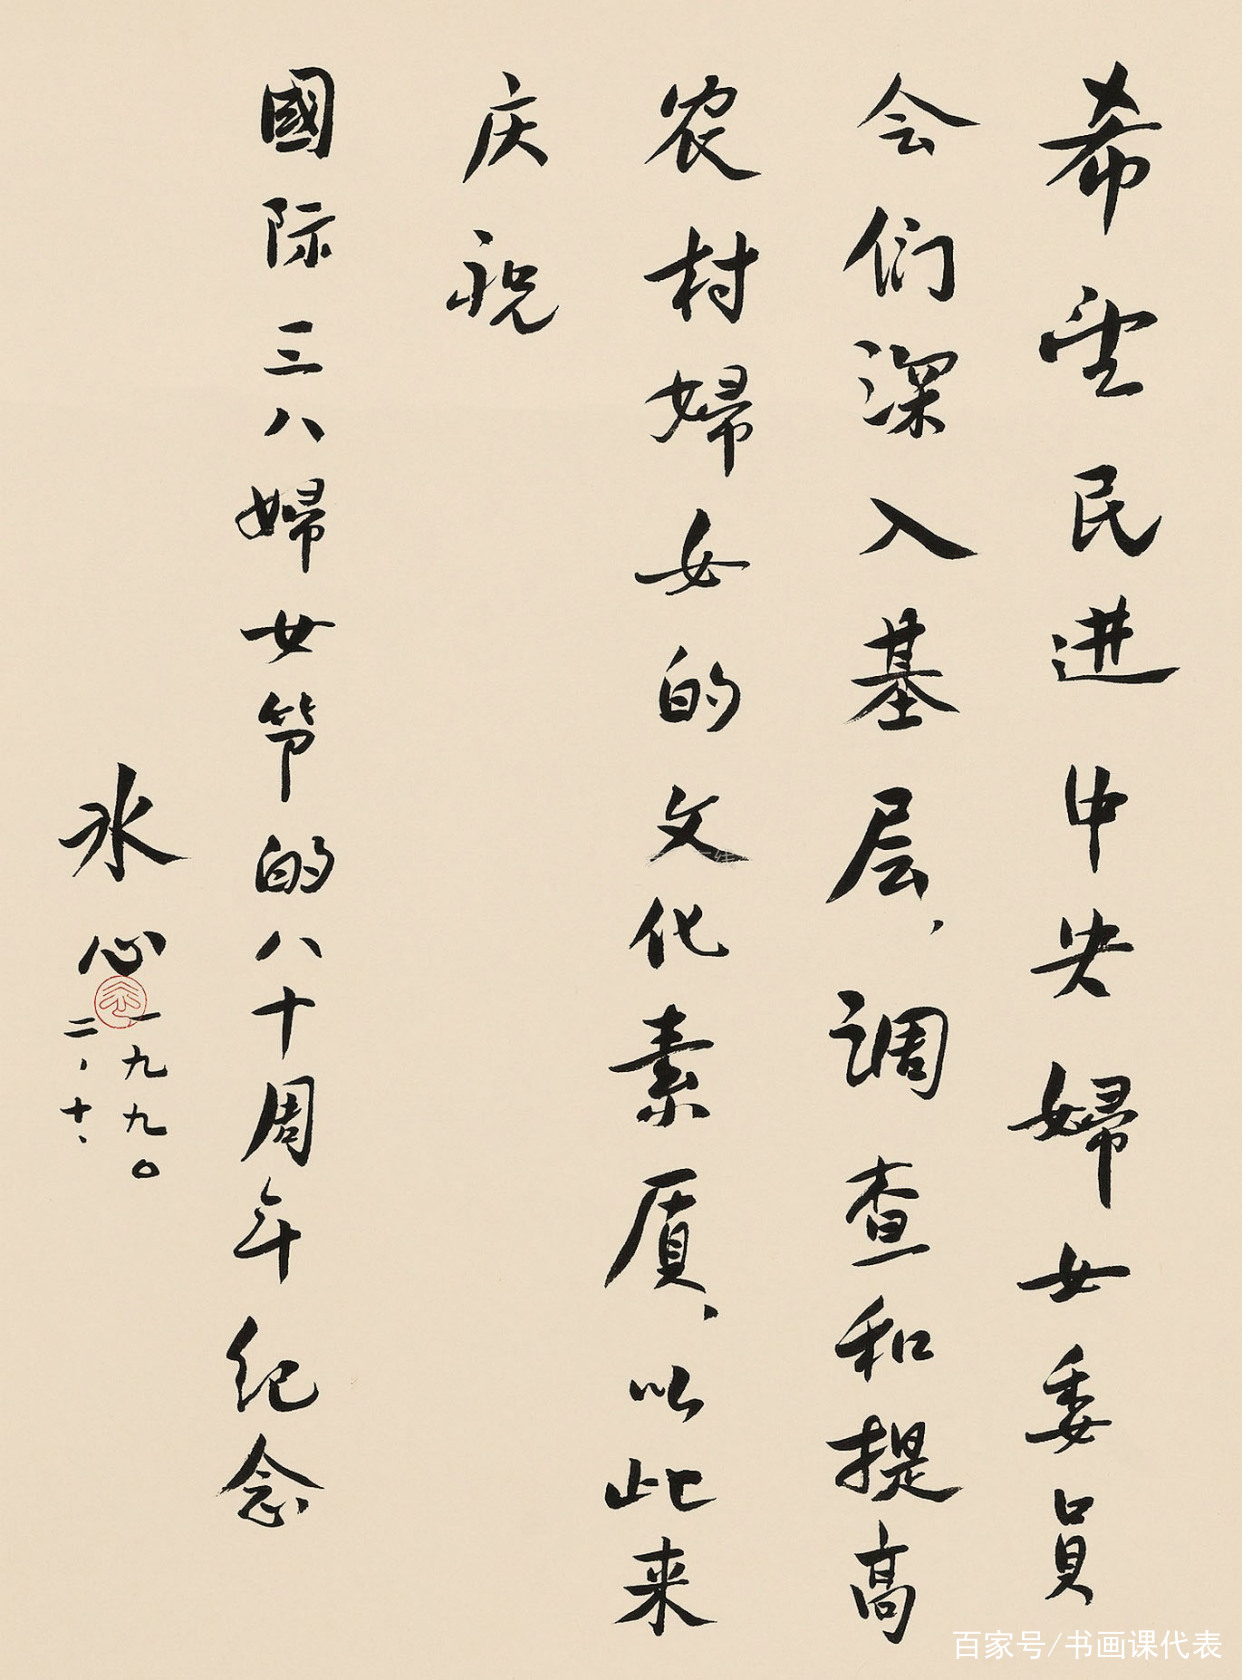 希望民进中央婦女委員
会们深入基层，调查和提高
农村婦女的文化素质，以此来
庆祝
國际三八婦女节的八十周年纪念
冰心
一九九〇
二、十、
百家号/书画课代表